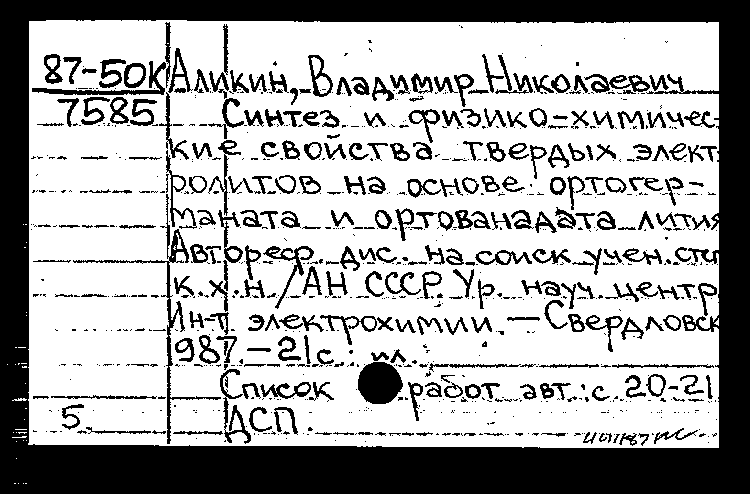 87-50К Аликин, Владимир Николаевич
7585 Синтез и физико-химичес-
кие свойства твердых элект
ролитов на основе ортогер-
маната и ортованадата лития
Автореф. дис. на соиск учен. степ
к.х.н / АН СССР, Ур. науч. центр
Ин-т электрохимии. — Свердловск
987. – 21 с.: ил.
Список работ авт.: с. 20-21
5. ДСП.